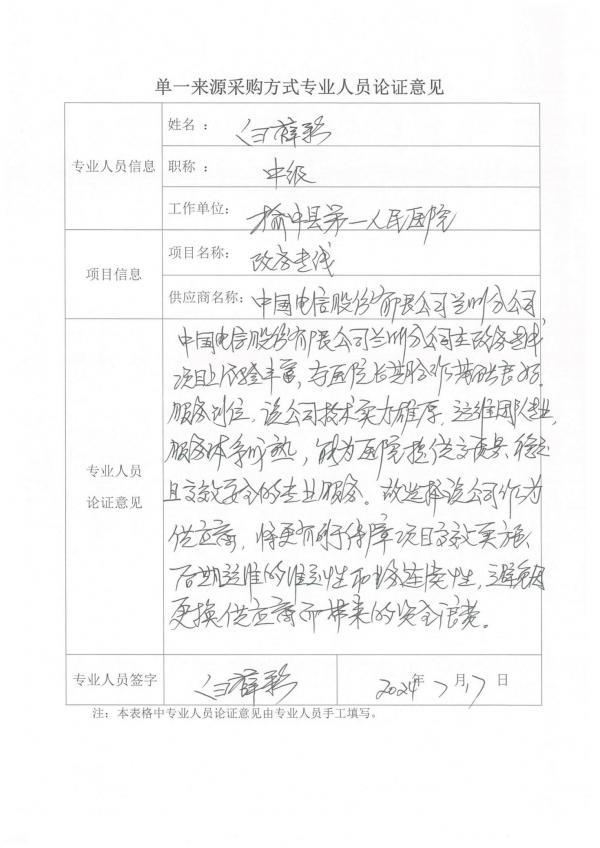 单一来源采购方式专业人员论证意见
专业人员信息
姓名：
职称：中级
工作单位：榆中县第一人民医院
项目信息
项目名称：政务专线
供应商名称：中国电信股份有限公司兰州分公司
专业人员
论证意见
中国电信股份有限公司兰州分公司在政务专线
项目上经验丰富，与医院长期合作基础良好，
服务到位，该公司技术实力雄厚，运维团队专业，
服务体系成熟，能为医院提供高质量、稳定
且高效安全的专业服务。故选择该公司作为
供应商，将更有利于保障项目高效实施、
后期运维的准确性和服务连续性，避免因
更换供应商而带来的资金浪费。
专业人员签字
2024年7月17日
注：本表格中专业人员论证意见由专业人员手工填写。